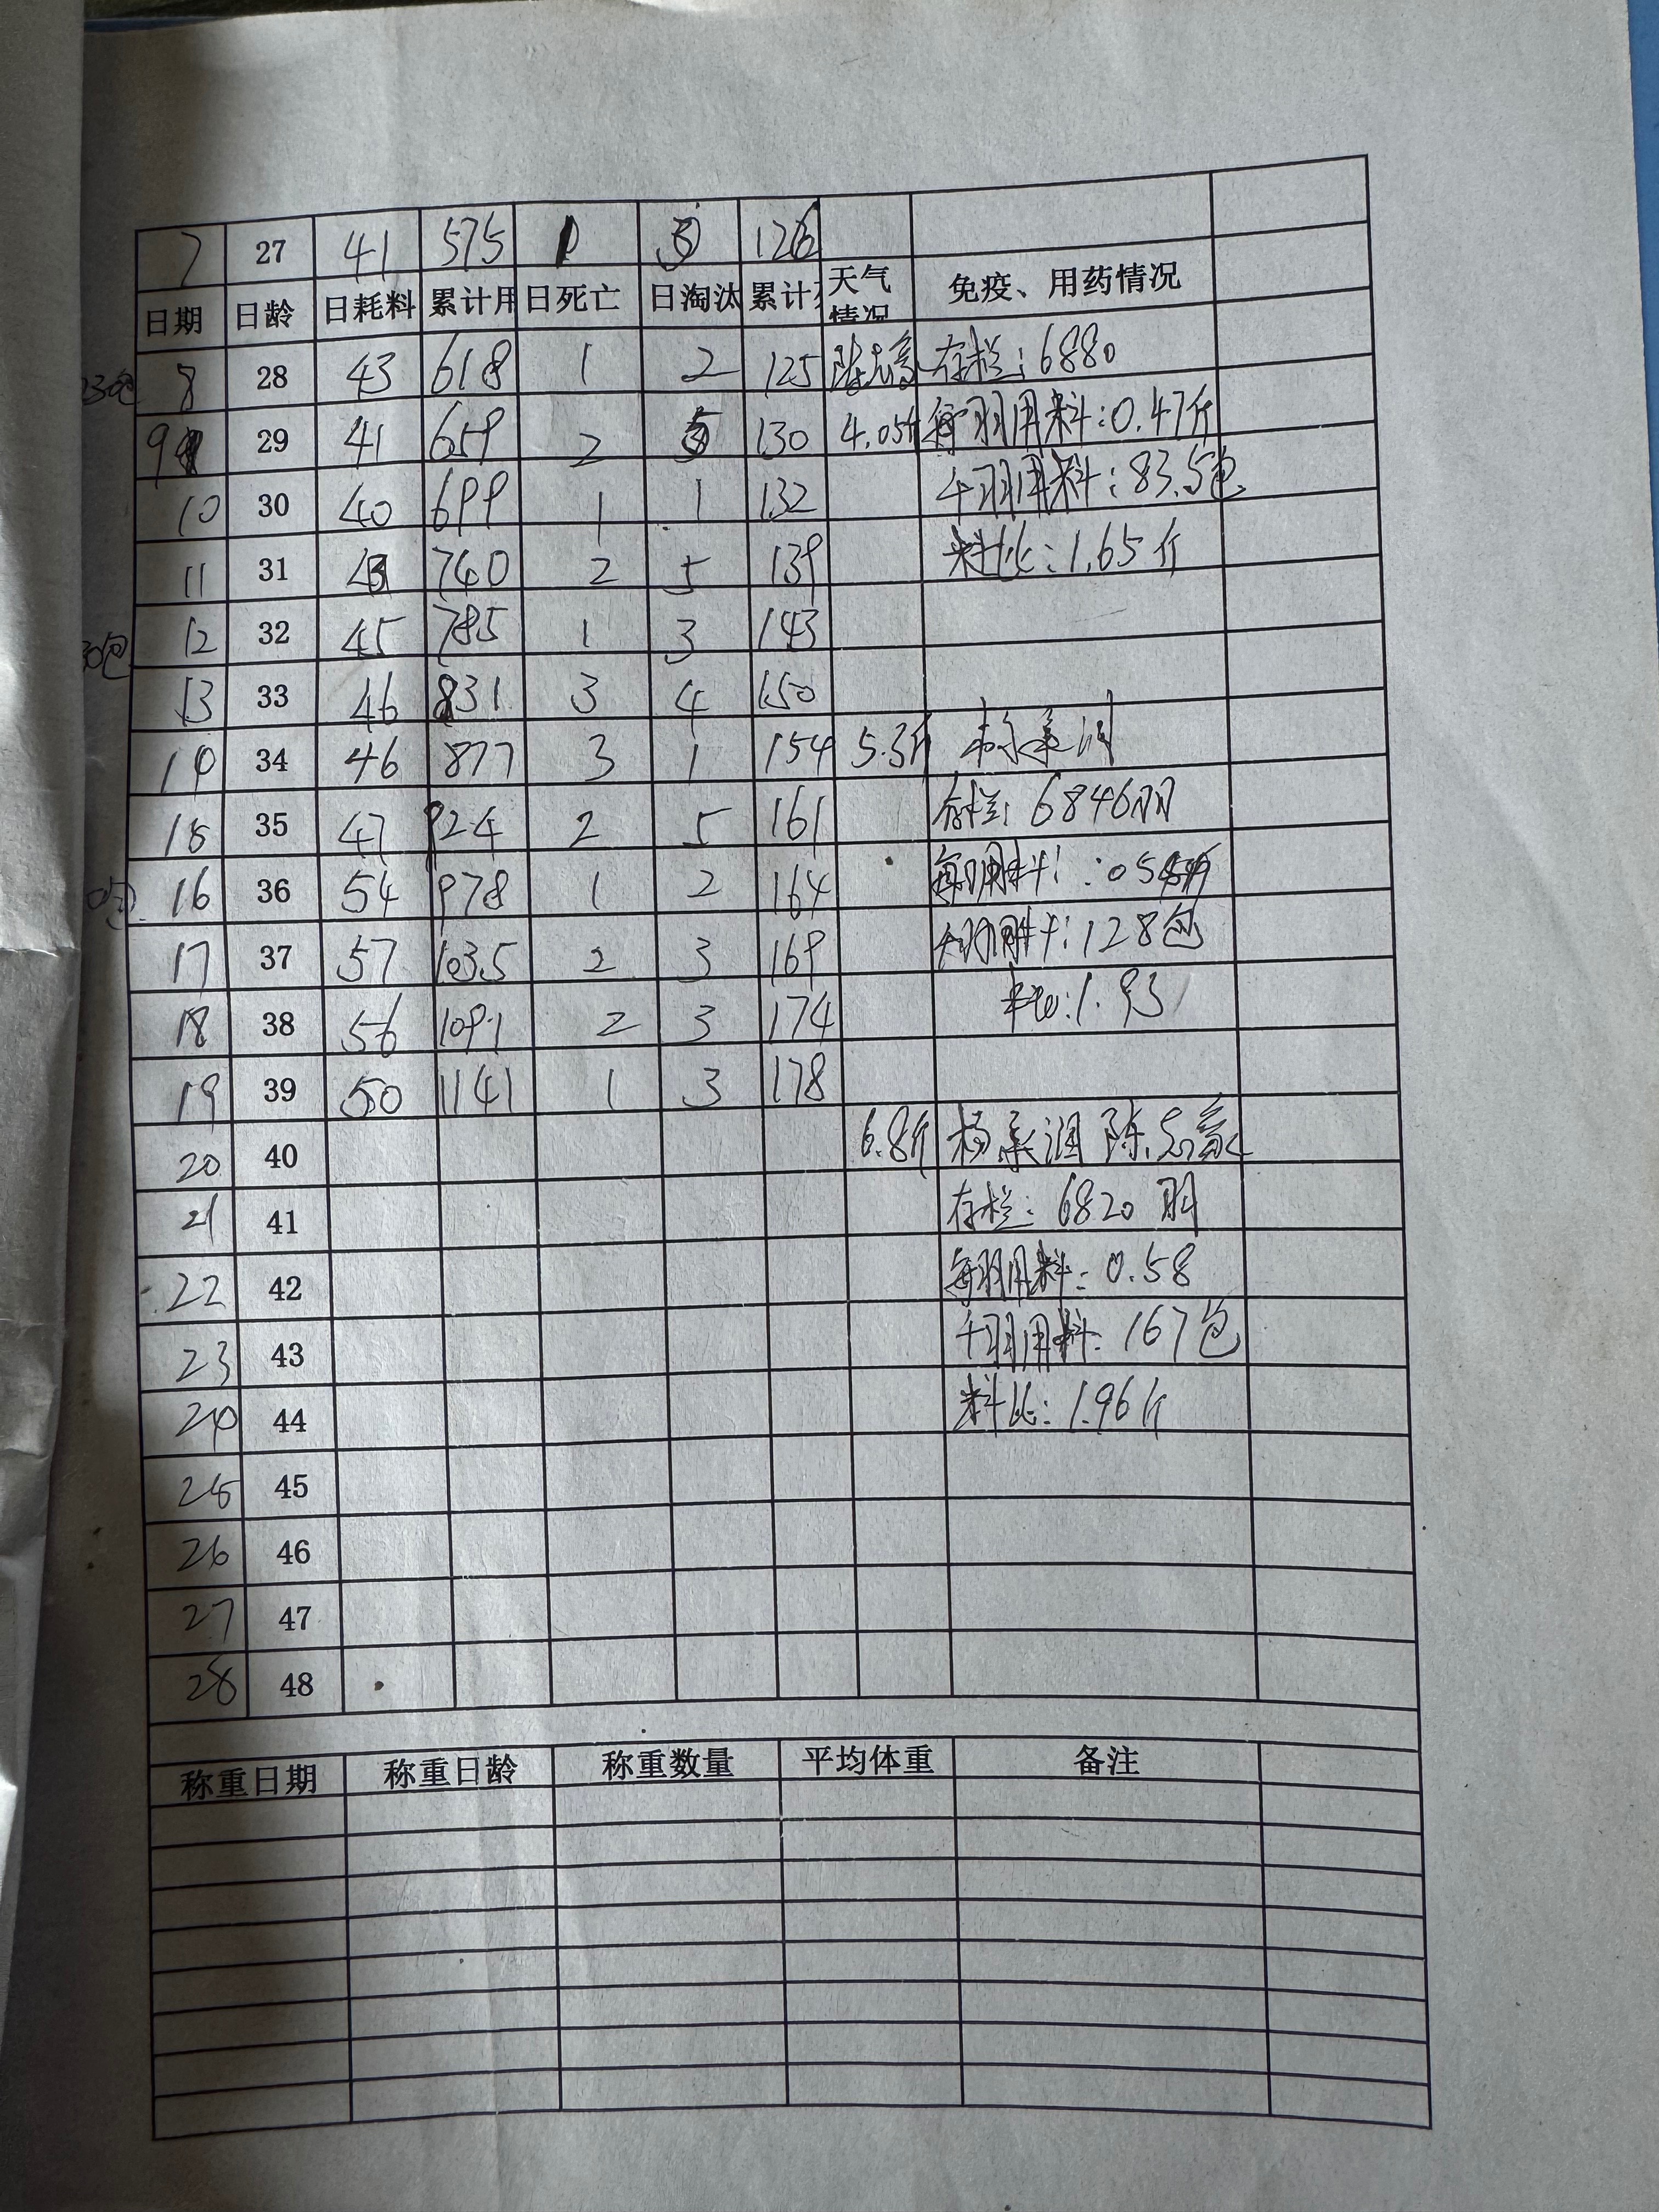 7 27 41 575 1 126
日期 日龄 日耗料 累计用 日死亡 日淘汰 累计 天气情况 免疫、用药情况
8 28 43 618 1 2 125 存栏:6880
9 29 41 659 2 5 130 4.05斤 每羽用料:0.47斤
10 30 40 699 1 1 132 千羽用料:83.5包
11 31 740 2 5 139 料比:1.65斤
30包 12 32 45 785 1 3 143
13 33 46 831 3 4 150
14 34 46 877 3 1 154 5.3斤
15 35 47 924 2 5 161 存栏:6846羽
16 36 54 978 1 2 164 每羽用料:
17 37 57 1035 2 3 169 千羽用料:128包
18 38 56 1091 2 3 174 料比:1.93
19 39 50 1141 1 3 178
20 40 6.8斤 杨承润 陈志
21 41 存栏:6820羽
22 42 每羽用料:0.58
23 43 千羽用料:167包
24 44 料比:1.96斤
25 45
26 46
27 47
28 48
称重日期 称重日龄 称重数量 平均体重 备注